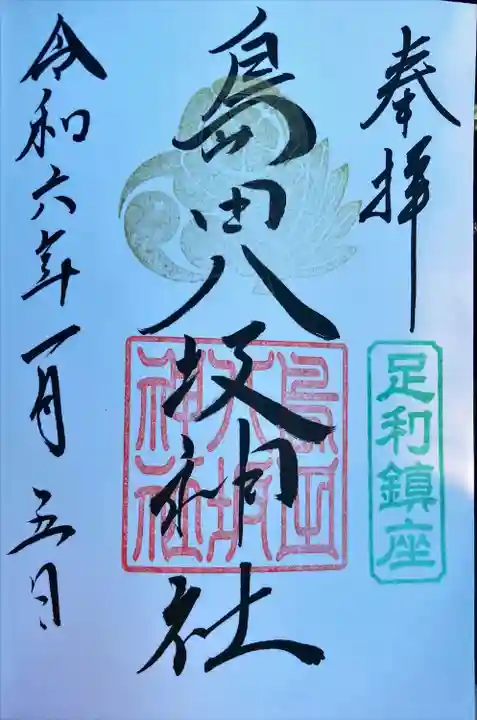 奉拝
足和鎮座
島田八坂神社
島田
八坂
神社
令和六年一月五日